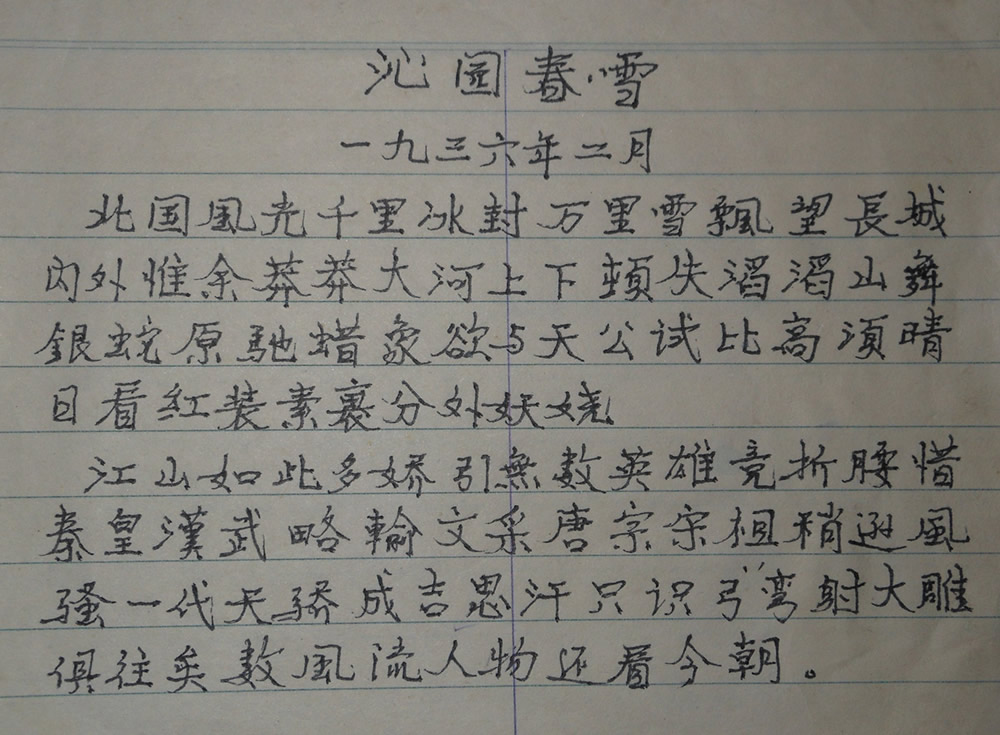 沁园春·雪
一九三六年二月
北国風光千里冰封万里雪飄望長城
内外惟余莽莽大河上下頓失滔滔山舞
銀蛇原馳蜡象欲与天公试比高須晴
日看红装素裹分外妖娆
江山如此多娇引無数英雄竞折腰惜
秦皇漢武略輸文采唐宗宋祖稍逊風
骚一代天骄成吉思汗只识弓弯射大雕
俱往矣数風流人物还看今朝。